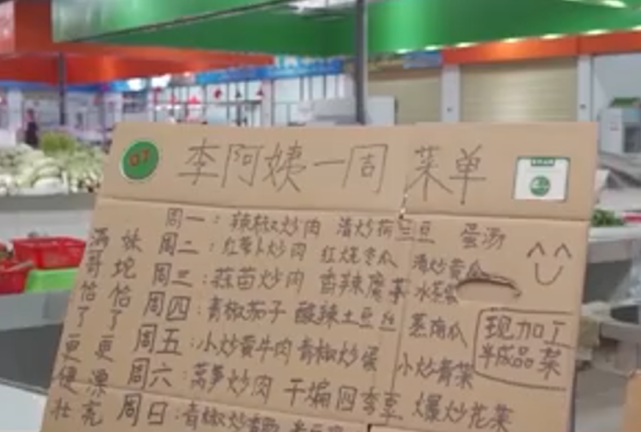 李阿姨一周菜单
周一：辣椒炒肉 清炒荷兰豆 蛋汤
周二：红萝卜炒肉 红烧冬瓜 清炒黄瓜
周三：蒜苗炒肉 香辣魔芋 水蒸蛋
周四：青椒茄子 酸辣土豆丝 蒸南瓜
周五：小炒黄牛肉 青椒炒蛋 小炒青菜
周六：莴笋炒肉 干煸四季豆 爆炒花菜
周日：青椒炒
满哥恰了更便壮
妹坨恰了更漂亮
现加工
半成品菜